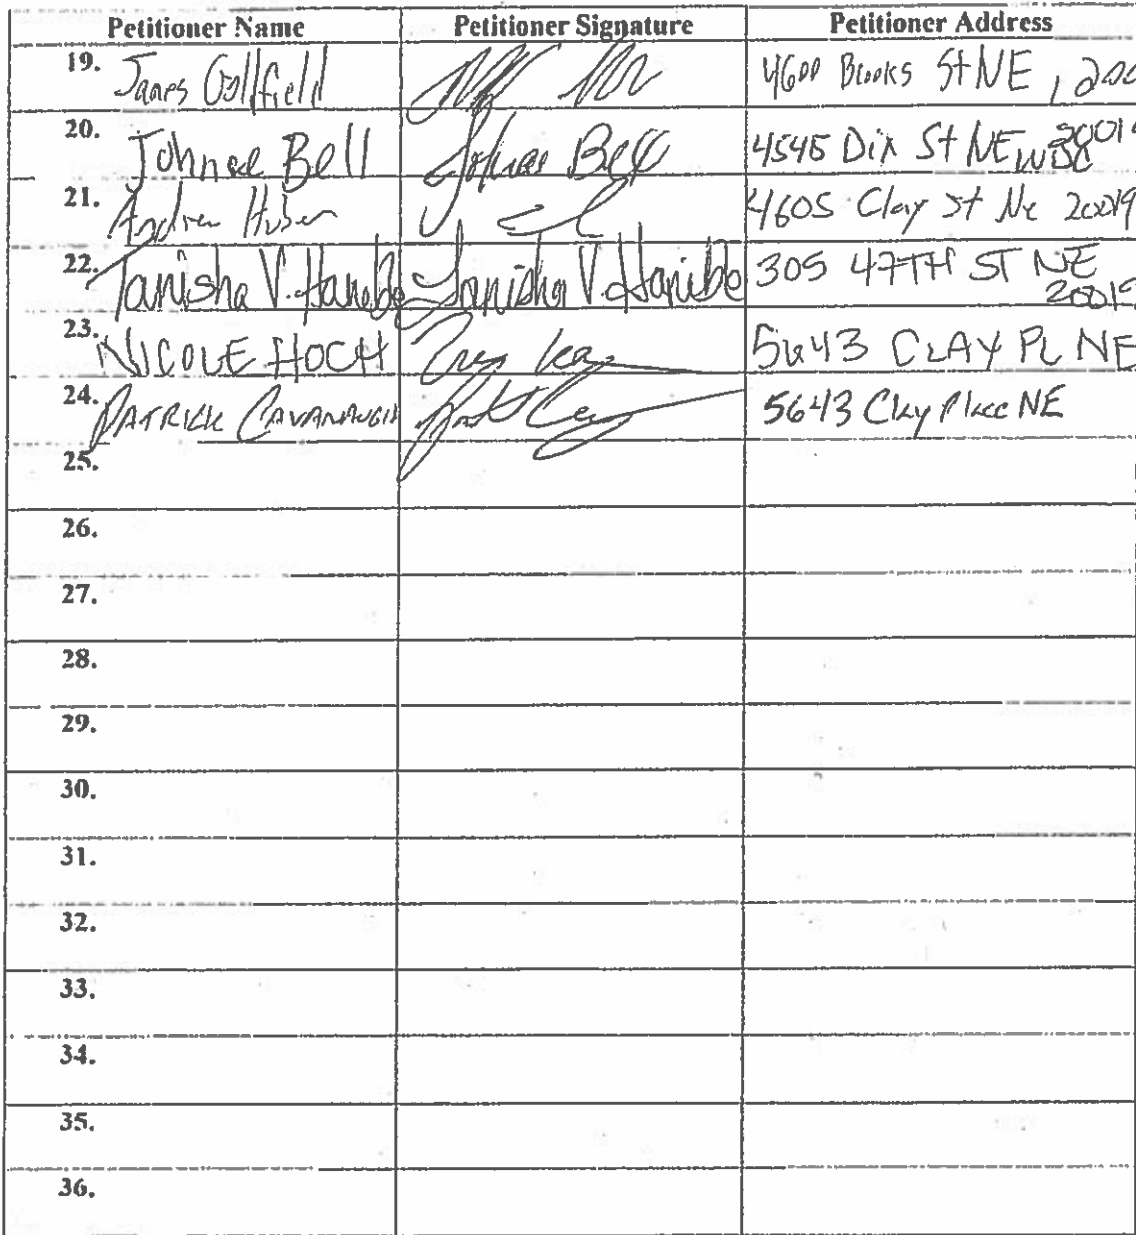 Petitioner Name Petitioner Signature Petitioner Address
19. James 4600 Brooks St NE, 200
20. Johnae Bell Johnae Bell 4545 Dix St NE WDC 20019
21. Andrew Huber 4605 Clay St Ne 20019
22. Tanisha V. Hanibe Tanisha V. Hanibe 305 47TH ST NE 20019
23. NICOLE HOCH 5643 CLAY PL NE
24. PATRICK CAVANAUGH 5643 Clay Place NE
25.
26.
27.
28.
29.
30.
31.
32.
33.
34.
35.
36.